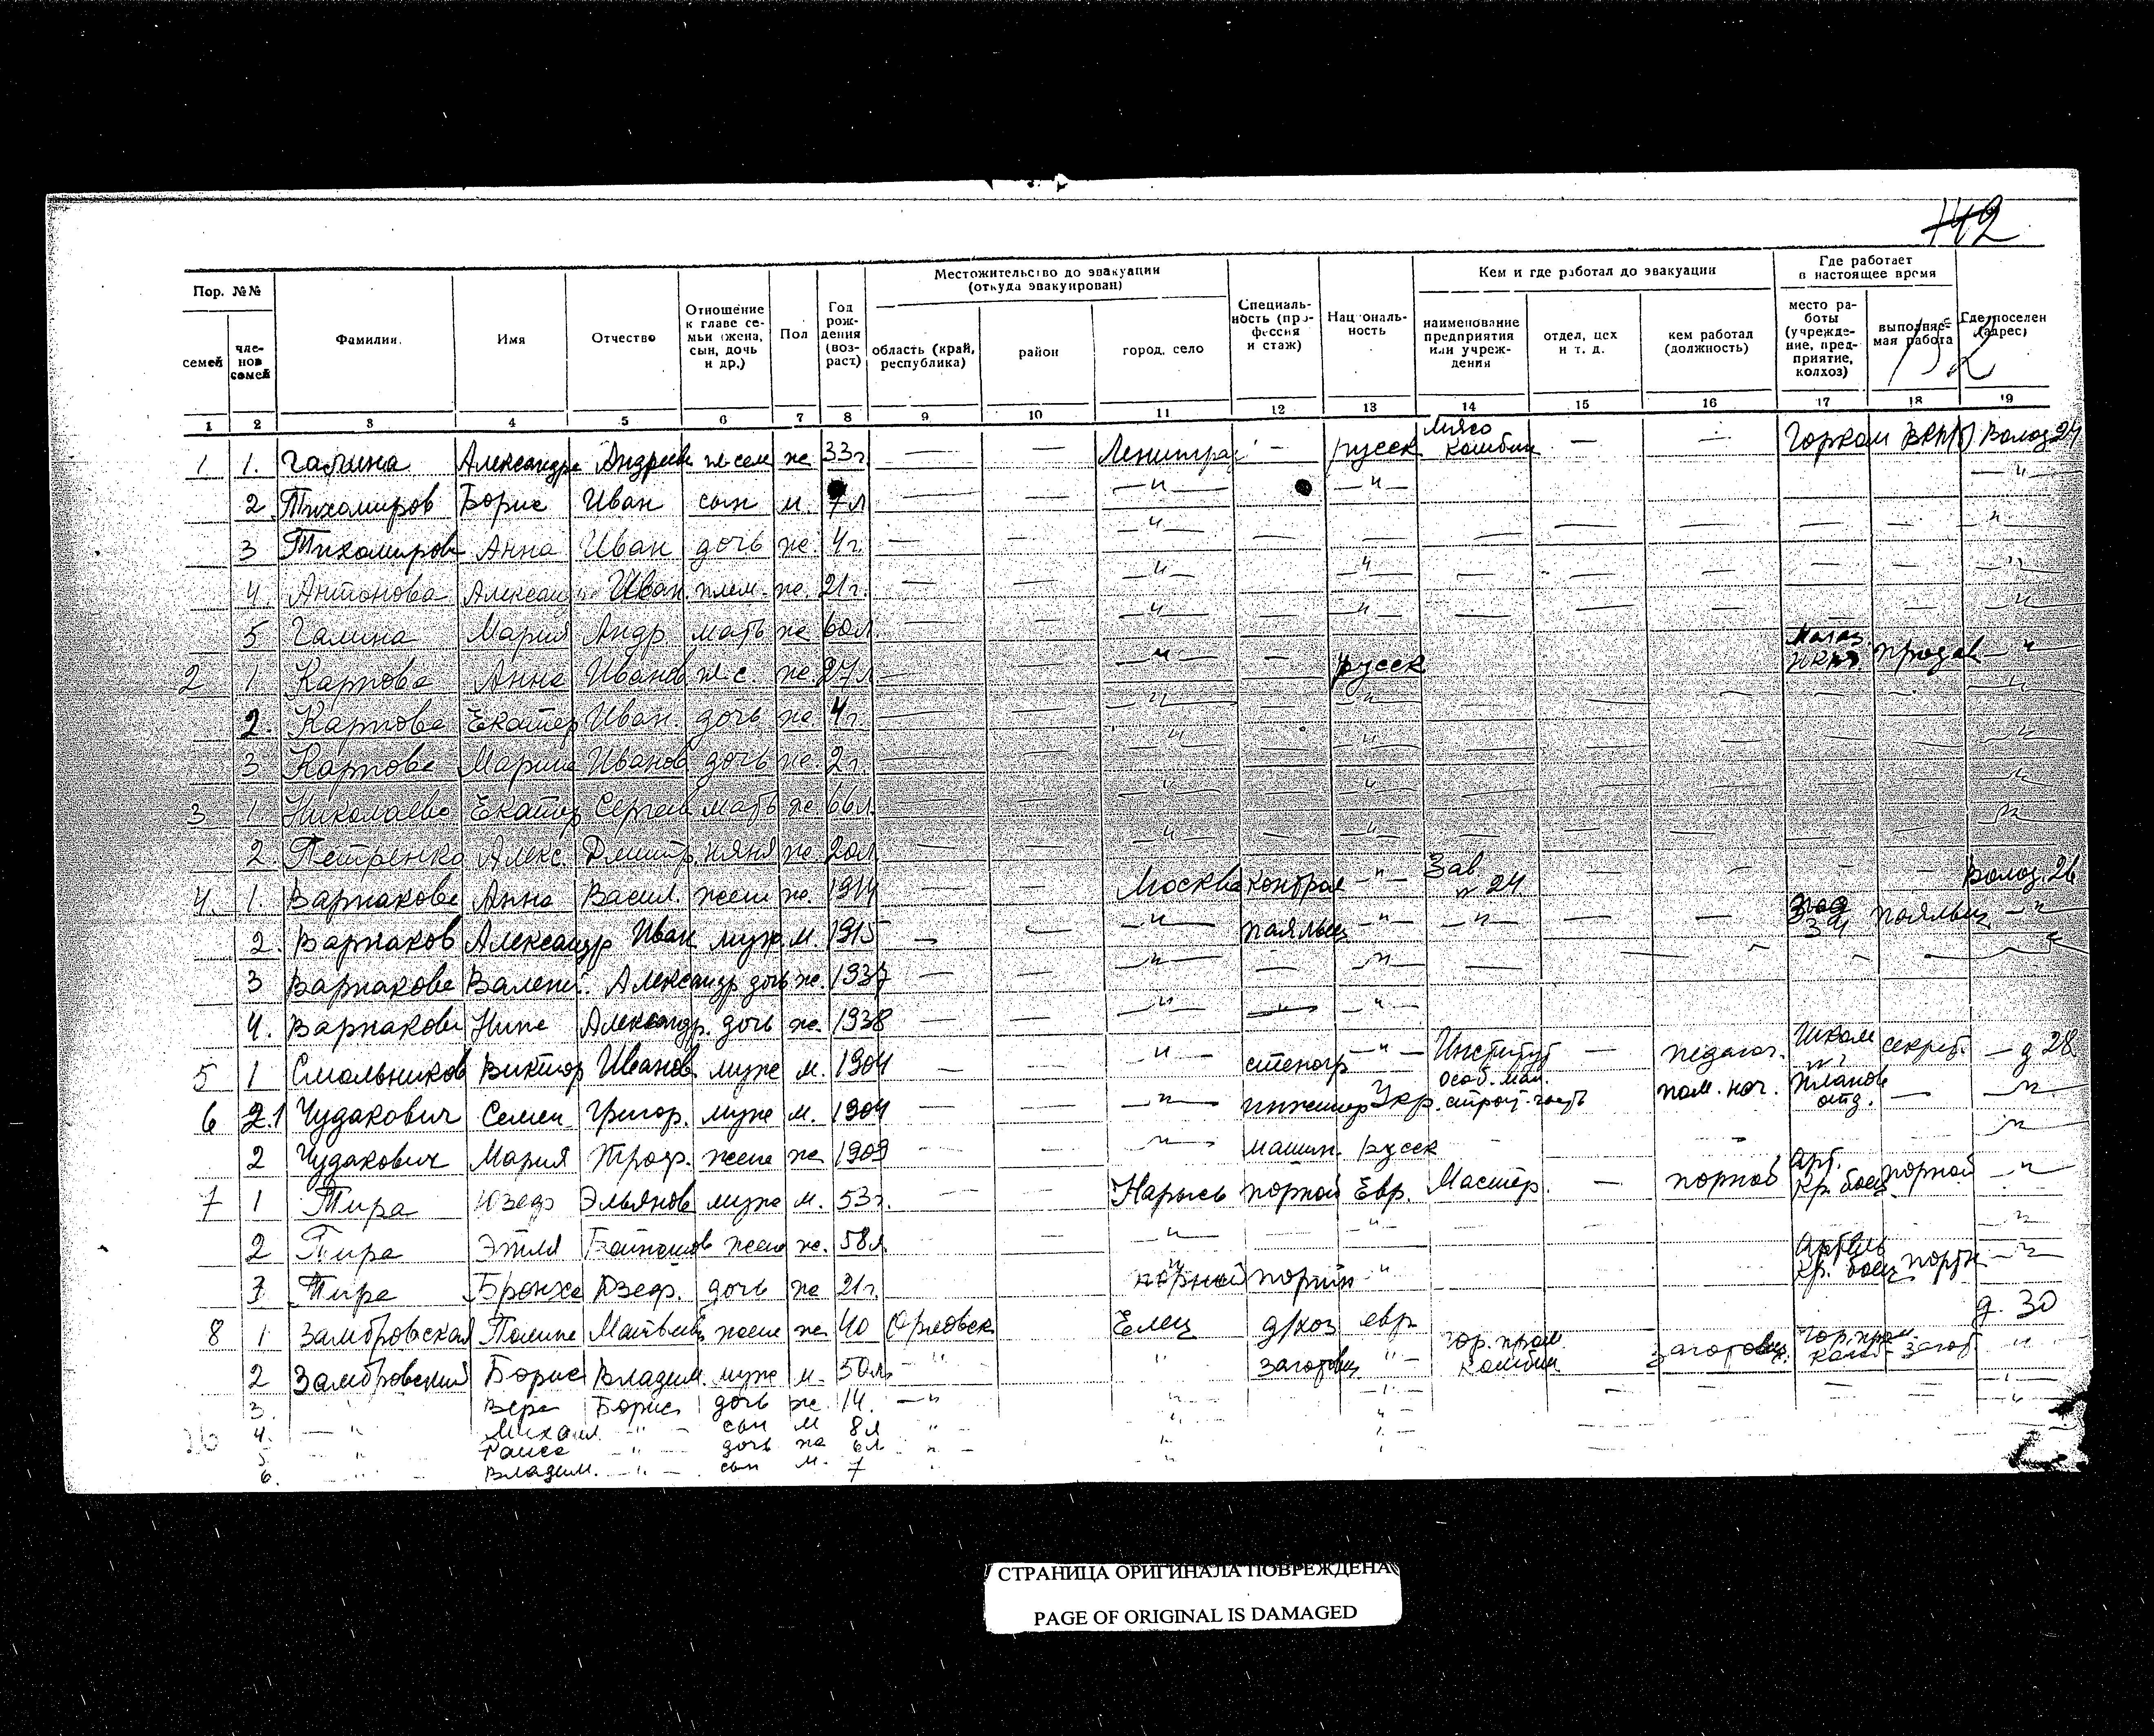 142
Пор. №№
семей
членов семей
Фамилия.
Имя
Отчество
Отношение к главе семьи (жена, сын, дочь и др.)
Пол
Год рождения (возраст)
Местожительство до эвакуации (откуда эвакуирован)
область (край, республика)
район
город, село
Специальность (профессия и стаж)
Национальность
Кем и где работал до эвакуации
наименование предприятия или учреждения
отдел, цех и т. д.
кем работал (должность)
Где работает в настоящее время
место работы (учреждение, предприятие, колхоз)
выполняемая работа
Где поселен (адрес)
1 2 3 4 5 6 7 8 9 10 11 12 13 14 15 16 17 18 19
1 1. Галина Александра Андреев ж. 33г. — — Ленинград — русск Мясо комбин — — Горком ВКП(б) Волод 24
2 Тихомиров Борис Иван сын м. 7л — — —"— —"— —"—
3 Тихомирова Анна Иван дочь ж. 4г. — — —"— — — — — — "
4. Антонова Алексан Иван плем. ж. 21г. — — —"— —"— — — — — — "
5 Галина Мария Андр мать ж 60л — — —"— —"— — — — — — "
2 1 Карпова Анна Иванов ж.с. ж. 27л — — —"— — русск Магаз. продав —"
2. Карпова Екатер Иван. дочь ж. 4г. — — —"— —"— "
3 Карпова Мария Иванов дочь ж. 2г. — — " —"— "
3 1 Николаева Екатер Сергеев мать ж 66л. — — —"— " "
2. Петренко Алекс. Дмитр. няня ж. 20л — — —"— — —"— — — — — — "
4. 1. Варнакова Анна Васил. жена ж. 1914 — — Москва контрол —"— Зав № 24 — — — — Волод. 26
2. Варнаков Александр Иван муж м. 1915 — — —"— паяльщ —"— —"— — — Завод 34 паяльщ —"—
3 Варнакова Валент. Александр дочь ж. 1937 — — —"— — —"— — — —
4. Варнакова Нина Александр. дочь ж. 1938 — — —"— — —"—
5 1 Смольников Виктор Иванов. муж м. 1904 — — —"— стеногр —"— Институт — педагог. Школа секрет. — д 28
6 2.1 Чудакович Семен Григор. муж м. 1904 — — —"— инженер Укр. Особ. строит. часть пом. нач. Планов отд. — —"—
2 Чудакович Мария Троф. жена ж 1909 — — —"— машин. русск "
7 1 Тира Юзеф Эльянов муж м. 53г. — — портной Евр. Мастер. — портной Арт. Кр. боец портной —"
2 Тира Этля жена ж. 58л " " "
3 Тира Бронха Юзеф. дочь ж 21г. портн " Артель Кр. боец портн —"
8 1 Замбровская Полина Матвеев жена ж 40 Орловск Елец д/хоз евр д. 30
2 Замбровский Борис Владим. муж м. 50л. —"— " заготовщ " — Гор. пром. комбин заготовщ. Гор. пром. комб — загот "
3. Вера Борис дочь ж. 14. —" " " "
4. — " Михаил —"— сын м 8л " " "
5 " Раиса —"— дочь ж 6л " " "
6. " Владим. —"— сын м. 7 " "
СТРАНИЦА ОРИГИНАЛА ПОВРЕЖДЕНА
PAGE OF ORIGINAL IS DAMAGED